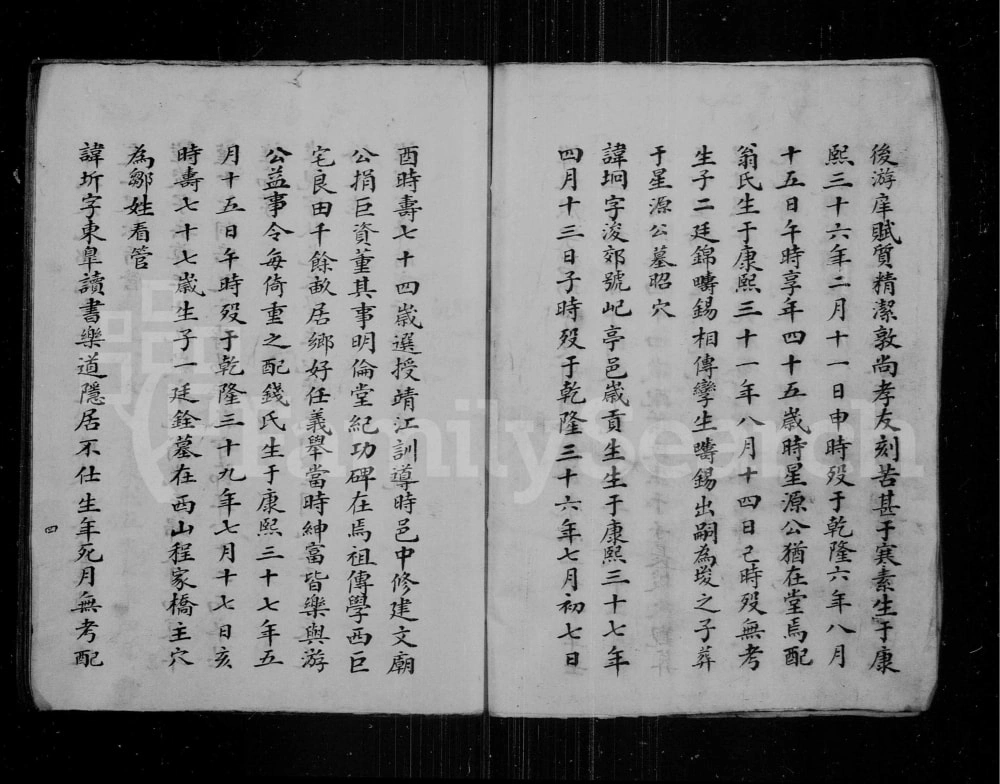 後游庠賦質精潔敦尚孝友刻苦甚于寒素生于康
熙三十六年二月十一日申時歿于乾隆六年八月
十五日午時享年四十五歲時星源公猶在堂焉配
翁氏生于康熙三十一年八月十四日己時歿無考
生子二廷錦疇錫相傳孿生疇錫出嗣為埈之子葬
于星源公墓昭穴
諱坰字浚郊號屺亭邑歲貢生生于康熙三十七年
四月十三日子時歿于乾隆三十六年七月初七日
酉時壽七十四歲選授靖江訓導時邑中修建文廟
公捐巨資董其事明倫堂紀功碑在焉祖傳學西巨
宅良田千餘畝居鄉好任義舉當時紳富皆樂與游
公益事令每倚重之配錢氏生于康熙三十七年五
月十五日午時歿于乾隆三十九年七月十七日亥
時壽七十七歲生子一廷銓墓在西山程家橋主穴
為鄒姓看管
諱圻字東皐讀書樂道隱居不仕生年死月無考配
四
FamilySearch